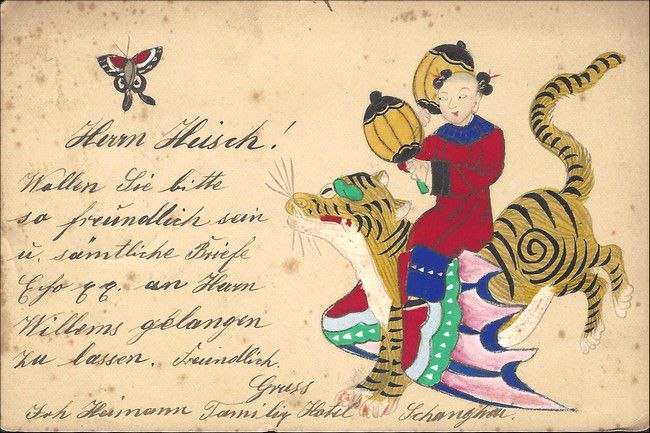 Herrn Heisch!
Wollen Sie bitte
so freundlich sein
u. sämtliche Briefe
an Herrn
Willems gelangen
zu lassen. Freundlich.
Gruss
Joh Heimann Familiy Hotel Schanghai.